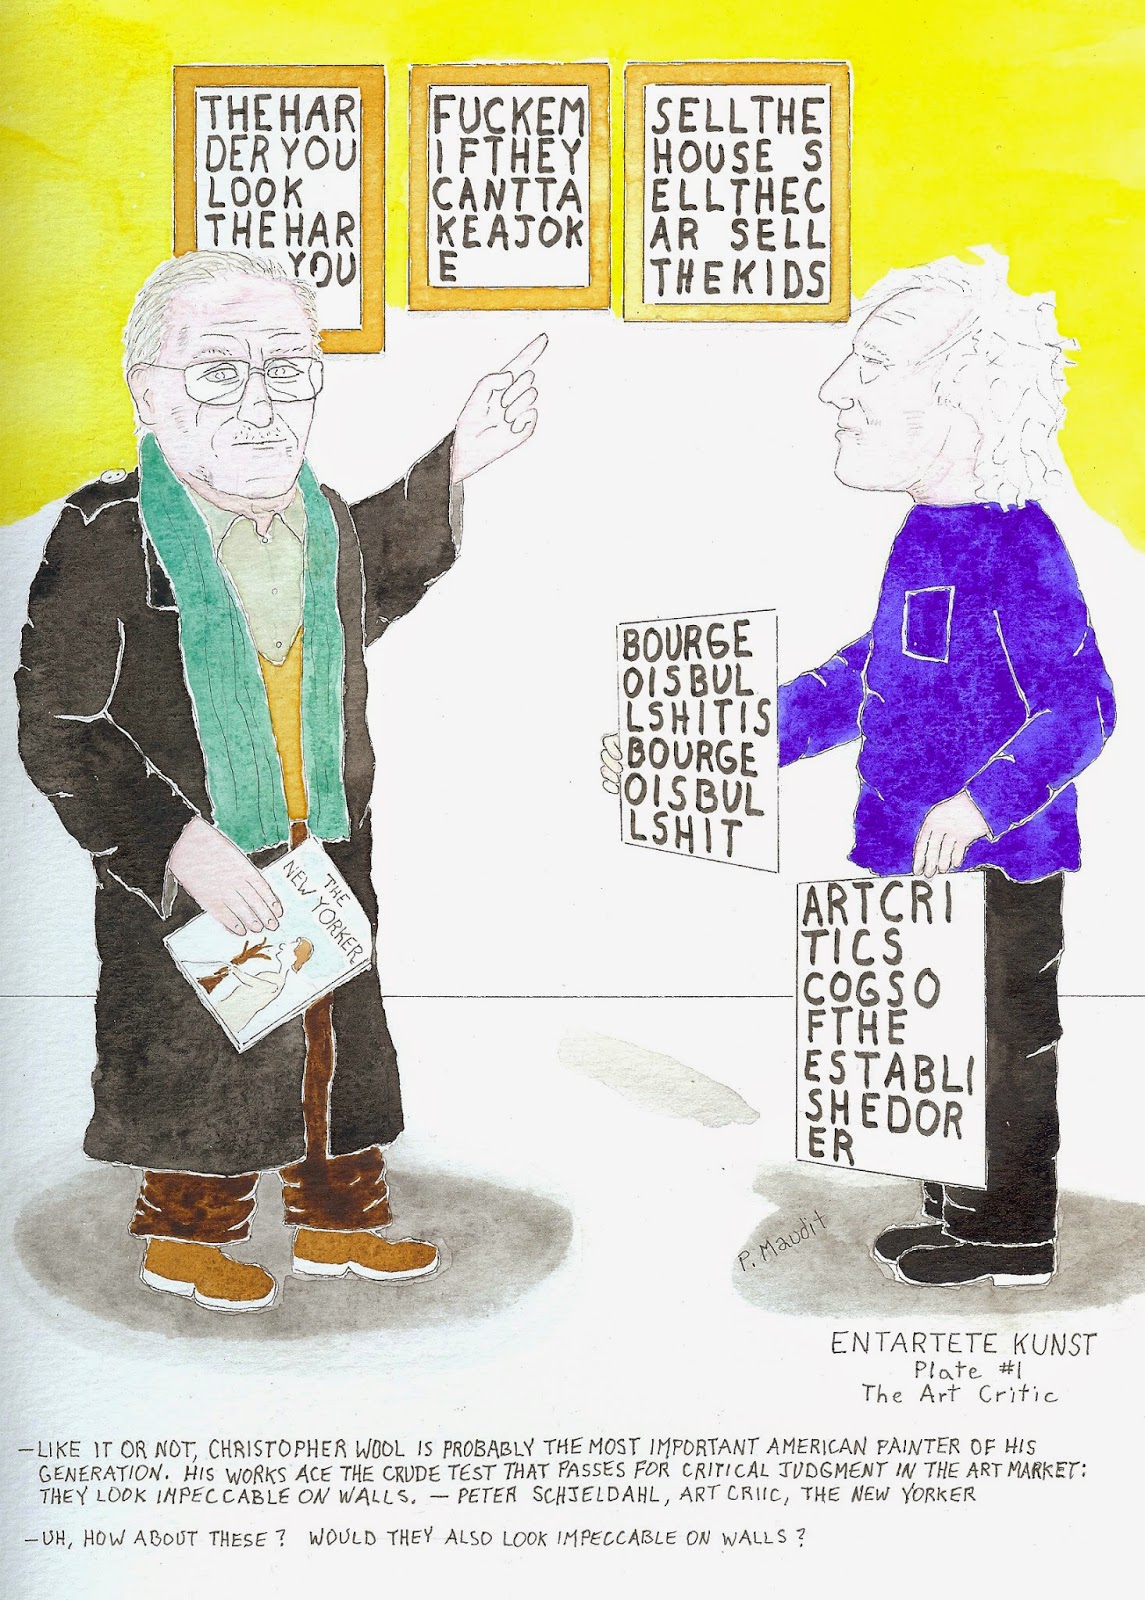 THEHAR
DERYOU
LOOK
THEHAR
YOU
FUCKEM
IFTHEY
CANTTA
KEAJOK
E
SELLTHE
HOUSE S
ELLTHEC
AR SELL
THEKIDS
BOURGE
OISBUL
LSHITIS
BOURGE
OISBUL
LSHIT
ARTCRI
TICS
COGSO
FTHE
ESTABLI
SHEDOR
ER
THE
NEW YORKER
P. Maudit
ENTARTETE KUNST
Plate #1
The Art Critic
—LIKE IT OR NOT, CHRISTOPHER WOOL IS PROBABLY THE MOST IMPORTANT AMERICAN PAINTER OF HIS
GENERATION. HIS WORKS ACE THE CRUDE TEST THAT PASSES FOR CRITICAL JUDGMENT IN THE ART MARKET:
THEY LOOK IMPECCABLE ON WALLS. — PETER SCHJELDAHL, ART CRIIC, THE NEW YORKER
—UH, HOW ABOUT THESE? WOULD THEY ALSO LOOK IMPECCABLE ON WALLS?